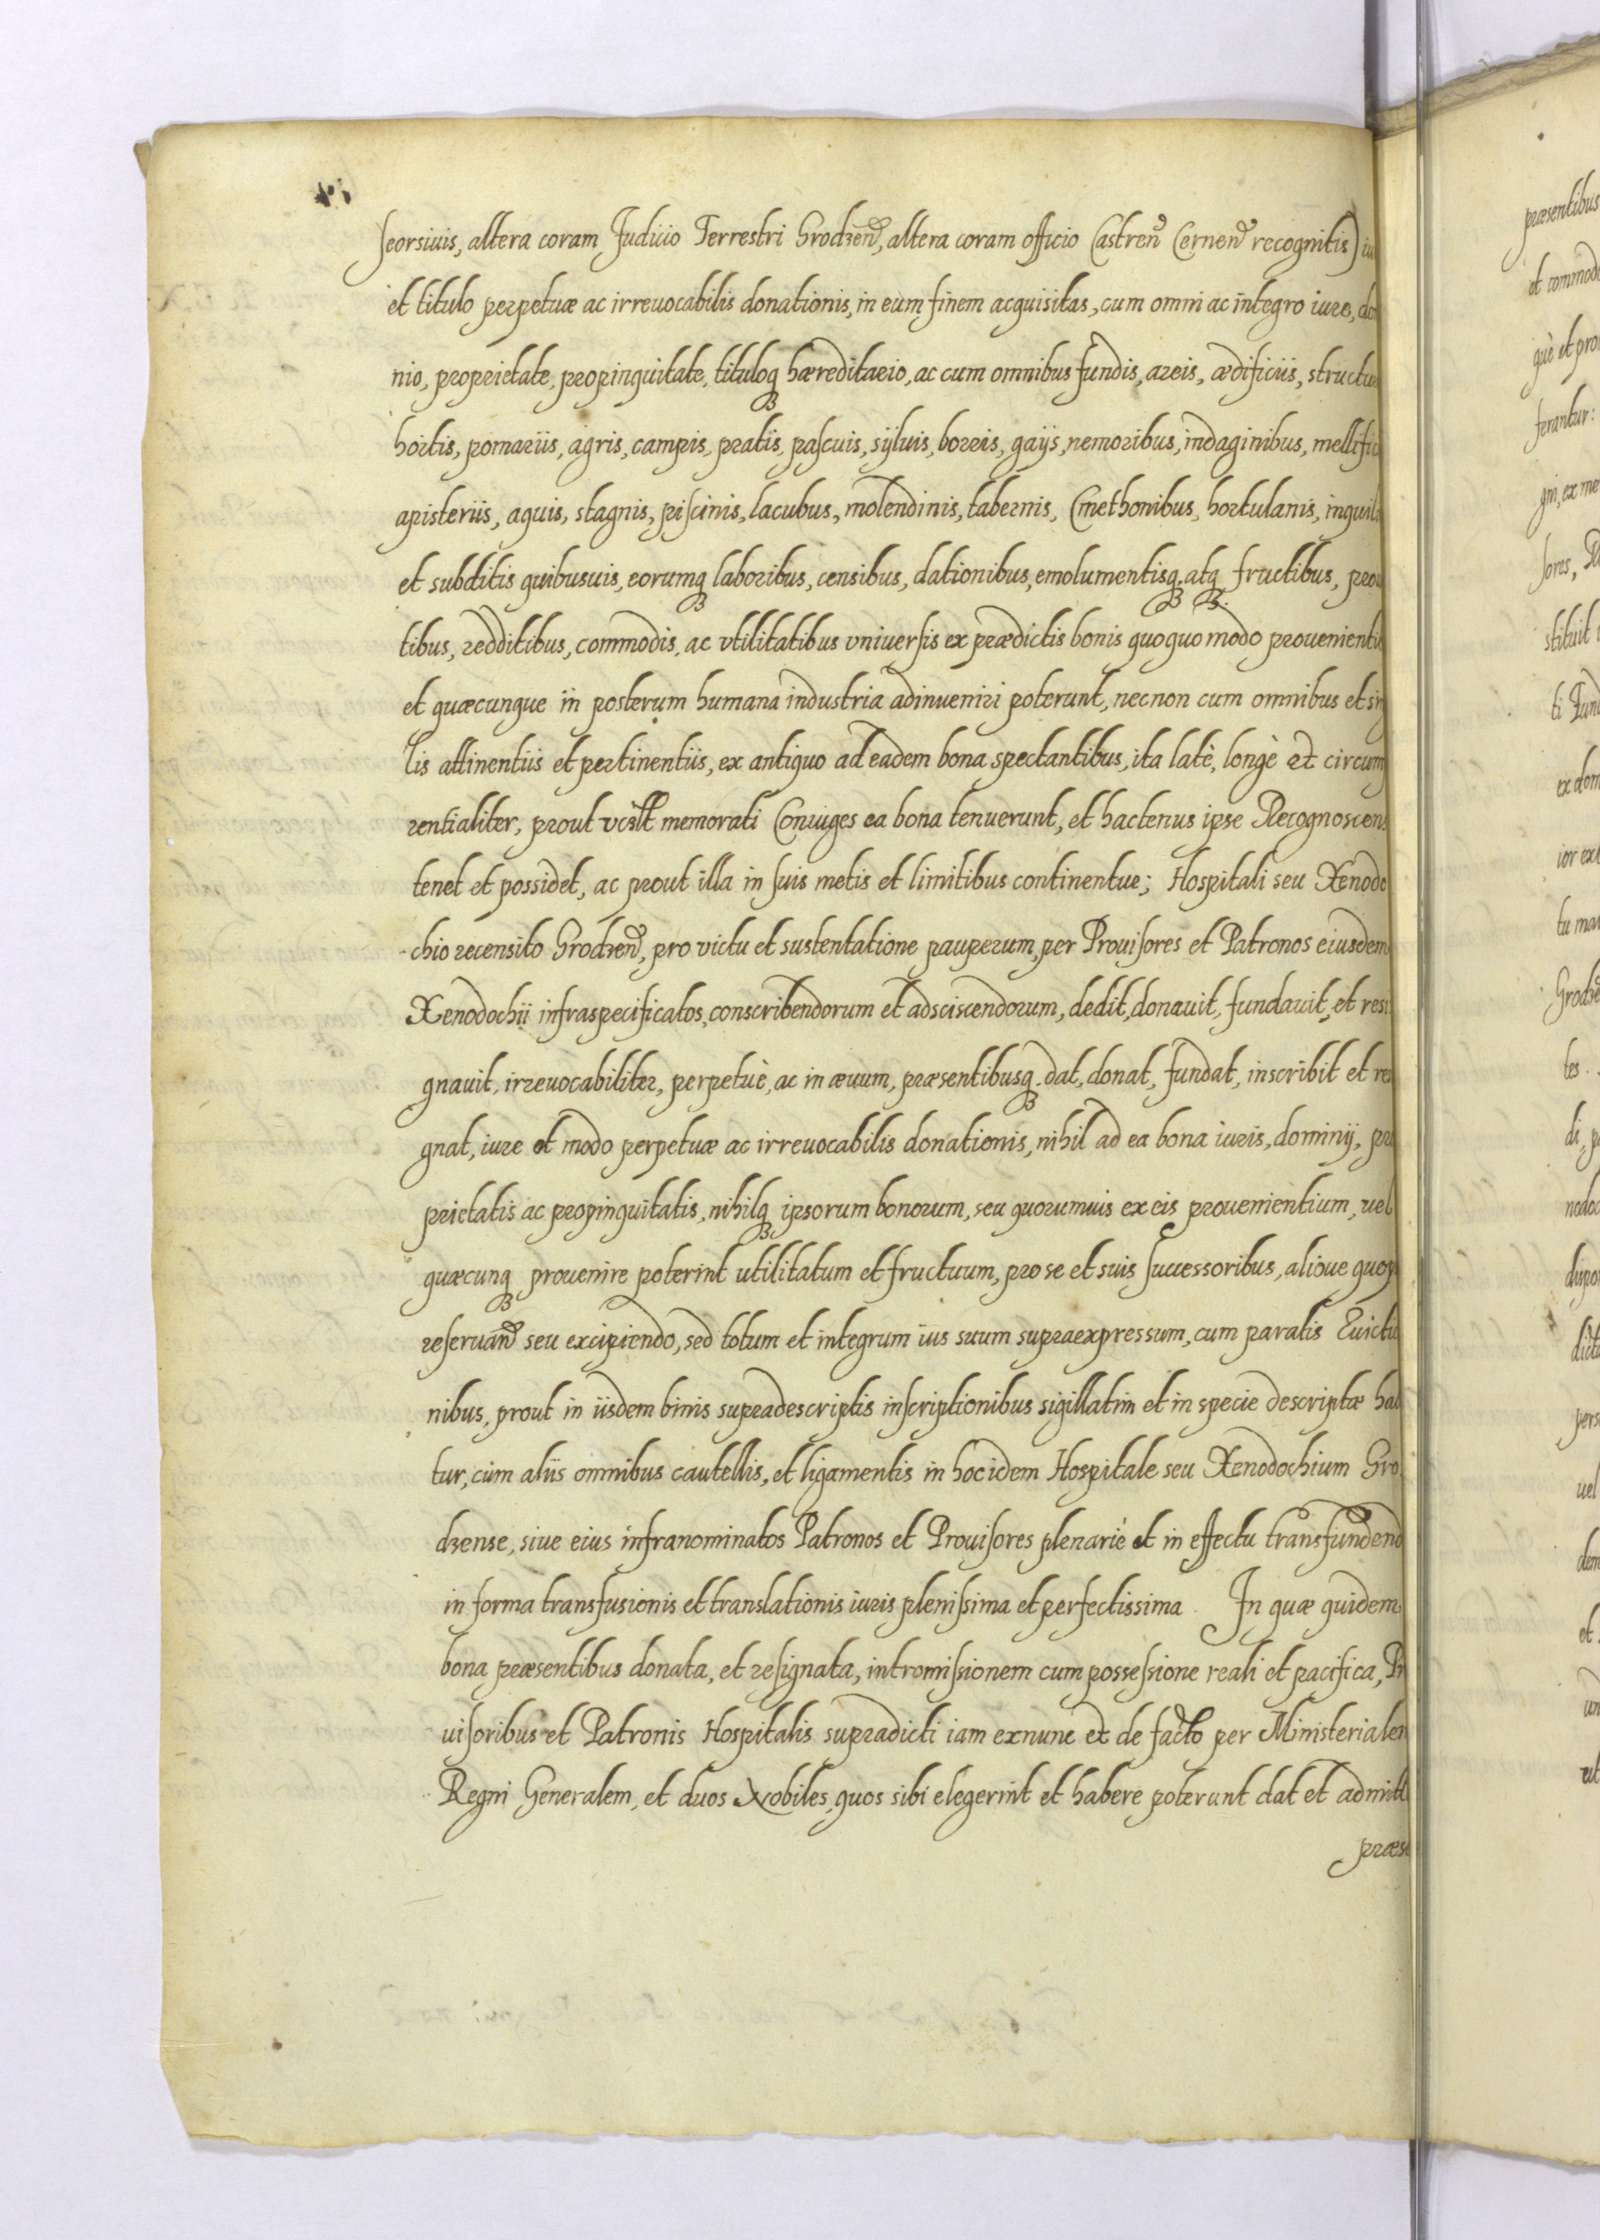 seorsivis, altera coram Judicio Terrestri Grodzen̄, altera coram officio Castren̄ Cernen̄ recognitis)
et titulo perpetuæ ac irreuocabilis donationis, in eum finem acquisitas, cum omni ac integro iure, do
nio, proprietate, propinquitate, tituloq hæreditario, ac cum omnibus fundis, areis, ædificiis, structu
hortis, pomariis, agris, campis, pratis, pascuis, syluis, borris, gays, nemoribus, indaginibus, mellific
apisteriis, aquis, stagnis, piscinis, lacubus, molendinis, tabernis, Cmethonibus, hortulanis, inquil
et subditis quibusuis, eorumq laboribus, censibus, dationibus, emolumentisq. atq fructibus, prou
tibus, redditibus, commodis, ac vtilitatibus vniuersis ex prædictis bonis quoquo modo prouenienti
et quæcunque in posterum humana industria adinueniri poterunt, necnon cum omnibus et sin
lis attinentiis et pertinentiis, ex antiquo ad eadem bona spectantibus, ita latè, longè et circum
rentialiter, prout memorati Coniuges ea bona tenuerunt, et hactenus ipse Recognoscens
tenet et possidet, ac prout illa in suis metis et limitibus continentur; Hospitali seu Xenodo
chio recensito Grodzen̄, pro victu et sustentatione pauperum, per Prouisores et Patronos eiusdem
Xenodochii infraspecificatos, conscribendorum et adsciscendorum, dedit, donauit, fundauit, et resi
gnauit, irreuocabiliter, perpetuè, ac in æuum, præsentibusq. dat, donat, fundat, inscribit et res
gnat, iure et modo perpetuæ ac irreuocabilis donationis, nihil ad ea bona iuris, dominij, pro
prietatis ac propinquitatis, nihilq ipsorum bonorum, seu quorumuis ex eis prouenientium, vel
quæcunq prouenire poterint utilitatum et fructuum, pro se et suis successoribus, alioue quop
reseruan̄ seu excipiendo, sed totum et integrum ius suum supraexpressum, cum paratis Euictio
nibus, prout in iisdem binis supradescriptis inscriptionibus sigillatim et in specie descriptæ hab
tur, cùm aliis omnibus cautellis, et ligamentis in hoc idem Hospitale seu Xenodochium Gro
dzense, siue eius infranominatos Patronos et Prouisores plenariè et in effectu transfundend
in forma transfusionis et translationis iuris plenissima et perfectissima. In quæ quidem
bona præsentibus donata, et resignata, intromissionem cum possessione reali et pacifica, Pr
uisoribus et Patronis Hospitalis supradicti iam exnunc et de facto per Ministerialem
Regni Generalem, et duos Nobiles, quos sibi elegerint et habere poterunt dat et admitt
præse